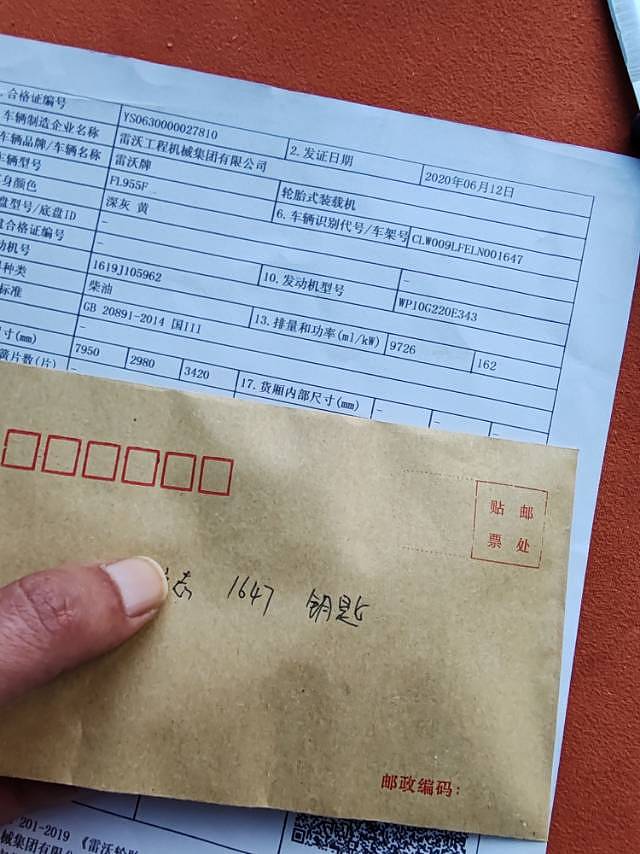 合格证编号 YS0630000027810 2. 发证日期 2020年06月12日
车辆制造企业名称 雷沃工程机械集团有限公司
车辆品牌/车辆名称 雷沃牌 轮胎式装载机
车辆型号 FL955F 6. 车辆识别代号/车架号 CLW009LFELN001647
身颜色 深灰 黄
盘型号/底盘ID - -
盘合格证编号 -
动机号 1619J105962 10. 发动机型号 WP10G220E343
种类 柴油
标准 GB 20891-2014 国III 13. 排量和功率(ml/kW) 9726 162
-
尺寸(mm) 7950 2980 3420 17. 货厢内部尺寸(mm) - - -
簧片数(片) -
贴 邮
票 处
志 1647 钥匙
邮政编码:
201-2019 《雷沃轮胎
械集团有限公